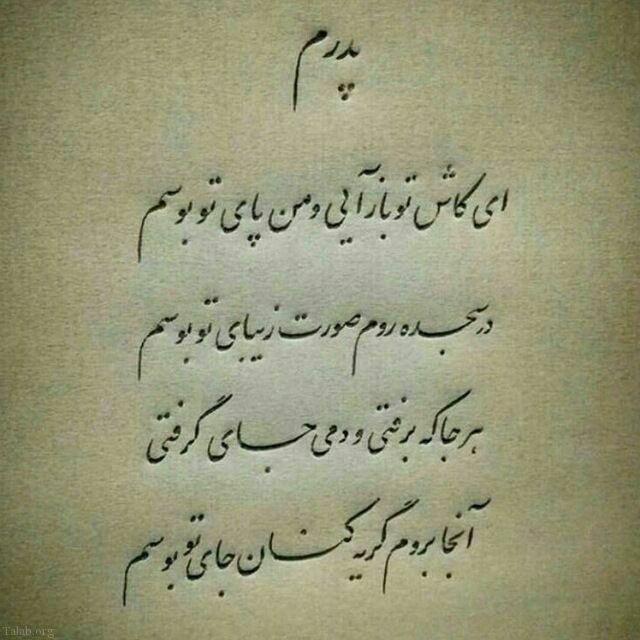 پدرم
ای کاش تو باز آیی و من پای تو بوسم
در سجده روم صورت زیبای تو بوسم
هر جا که برفتی و دمی جای گرفتی
آنجا بروم گریه کنان جای تو بوسم
Talab.org